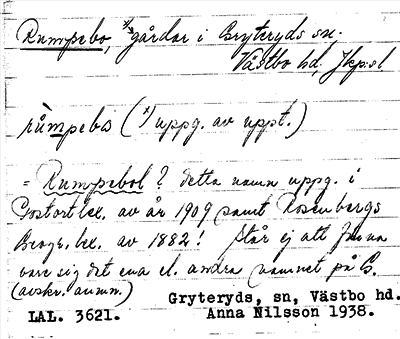 Rumpebo, ½ gårdar i Gryteryds sn.
Västbo hd, Jkp:sl
rùmpebò (¹/ uppg. av uppt.)
= Rumpebol? detta namn uppg. i
Postortlex. av år 1909 samt Rosenbergs
Geogr. lex. av 1882! Står ej att finna
vare sig det ena el. andra namnet på G.
(avskr. anm.)
Gryteryds, sn, Västbo hd.
LAL. 3621. Anna Nilsson 1938.